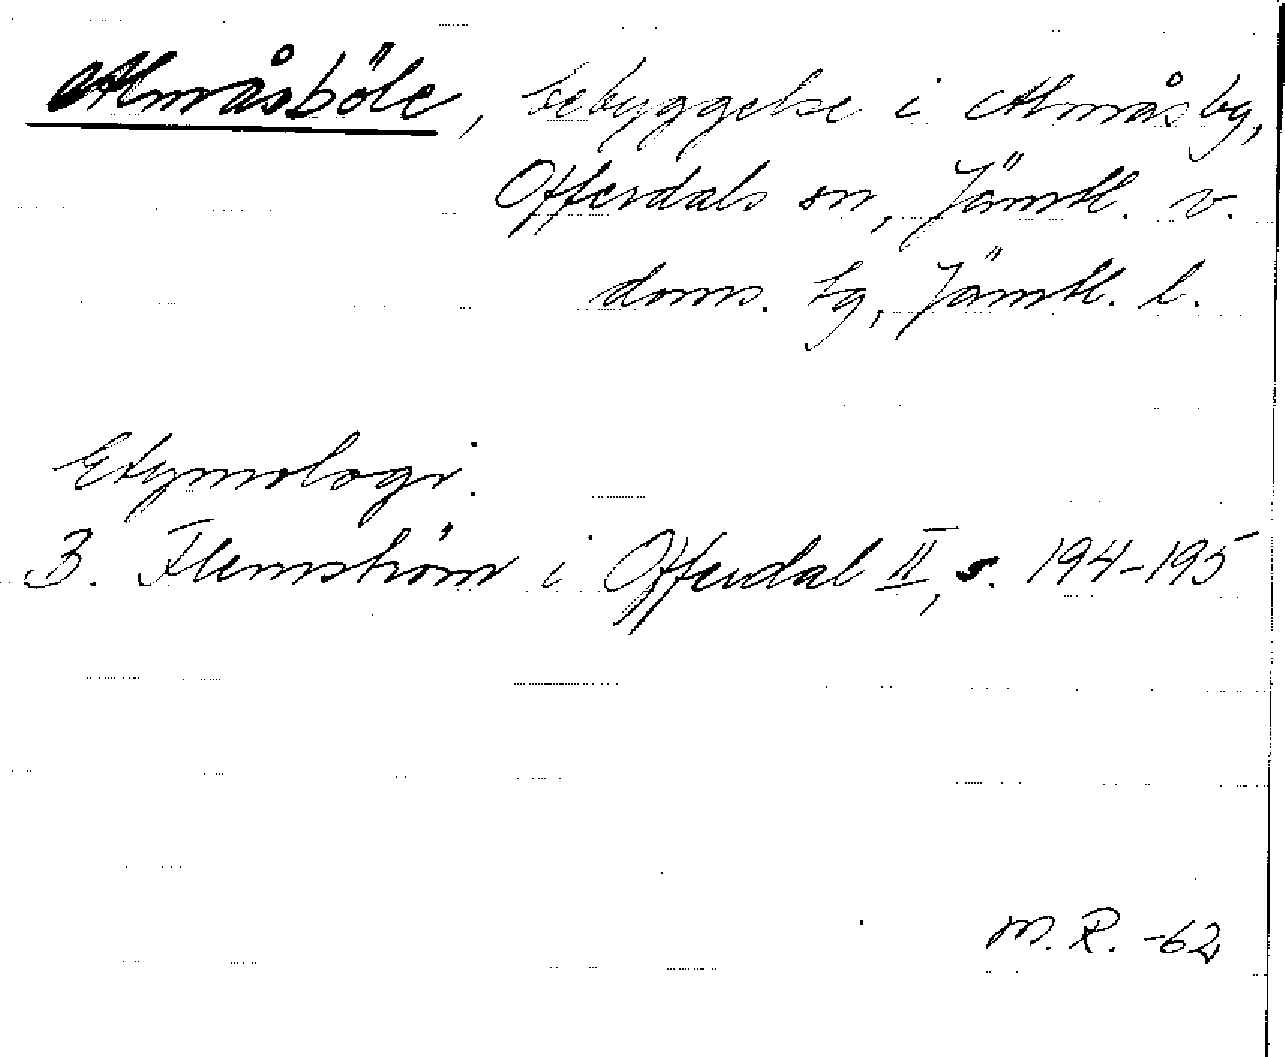 Almåsböle, bebyggelse i Almåsby,
Offerdals sn, Jämtl. v.
doms. tg, Jämtl. l.
Etymologi:
B. Flemström i Offerdal II, s. 194-195
M.R. -62